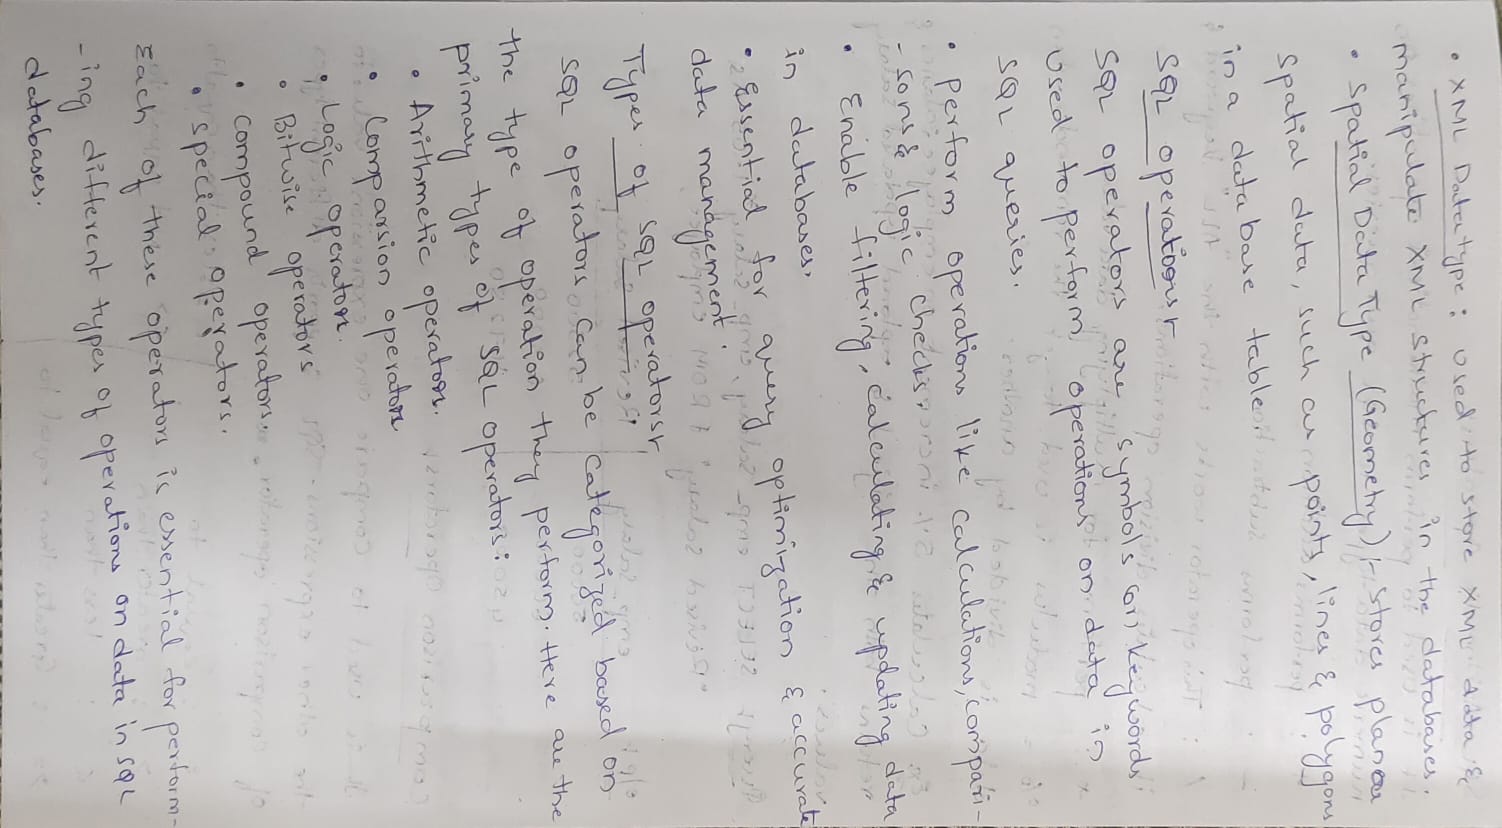 • XML Datatype: Used to store XML data &
manipulate XML structures in the databases.
• Spatial Data Type (Geometry):- Stores planar
spatial data, such as points, lines & polygons
in a database table.
SQL operators:-
SQL operators are symbols (or) keywords
used to perform operations on data in
SQL queries.
• perform operations like calculations, compari-
-sons & logic checks.
• Enable filtering, calculating & updating data
in databases.
• Essential for query optimization & accurate
data management.
Types of SQL operators:-
SQL operators can be categorized based on
the type of operation they perform. Here are the
primary types of SQL operators:
• Arithmetic operators.
• Comparsion operators
• Logic operators.
• Bitwise operators
• compound operators.
• special operators.
Each of these operators is essential for perform-
-ing different types of operations on data in SQL
databases.